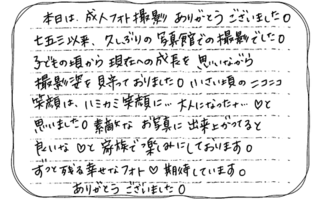 本日は、成人フォト撮影 ありがとうございました。
七五三以来、久しぶりの写真館での撮影でした。
子どもの頃から現在への成長を思いながら
撮影姿を見守っておりました。いさい頃のニコニコ
笑顔は、はにかみ笑顔に… 大人になったナ…♡と
思いました。素敵なお写真に出来上がってると
良いな♡と家族で楽しみにしております。
ずっと残る幸せなフォト♡期待しています。
ありがとうございました。